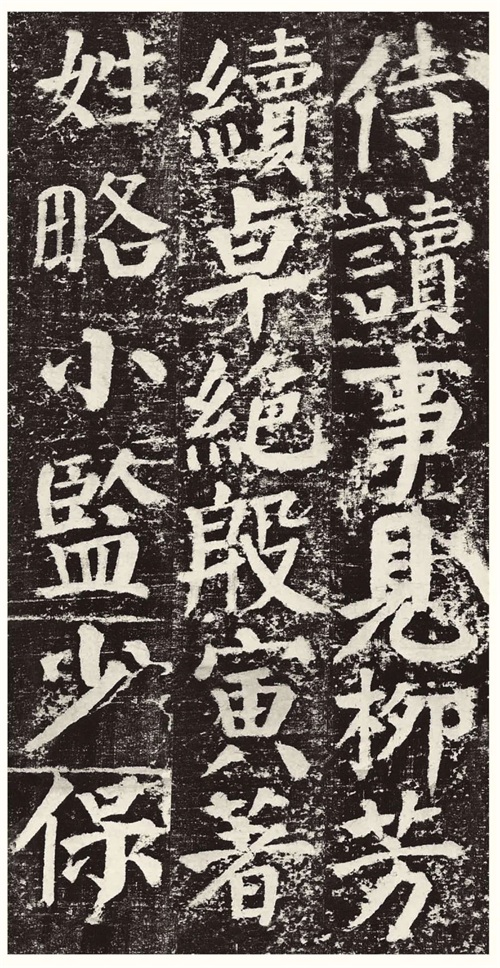 侍讀事見柳芳
續卓絶殷寅著
姓略小監少保